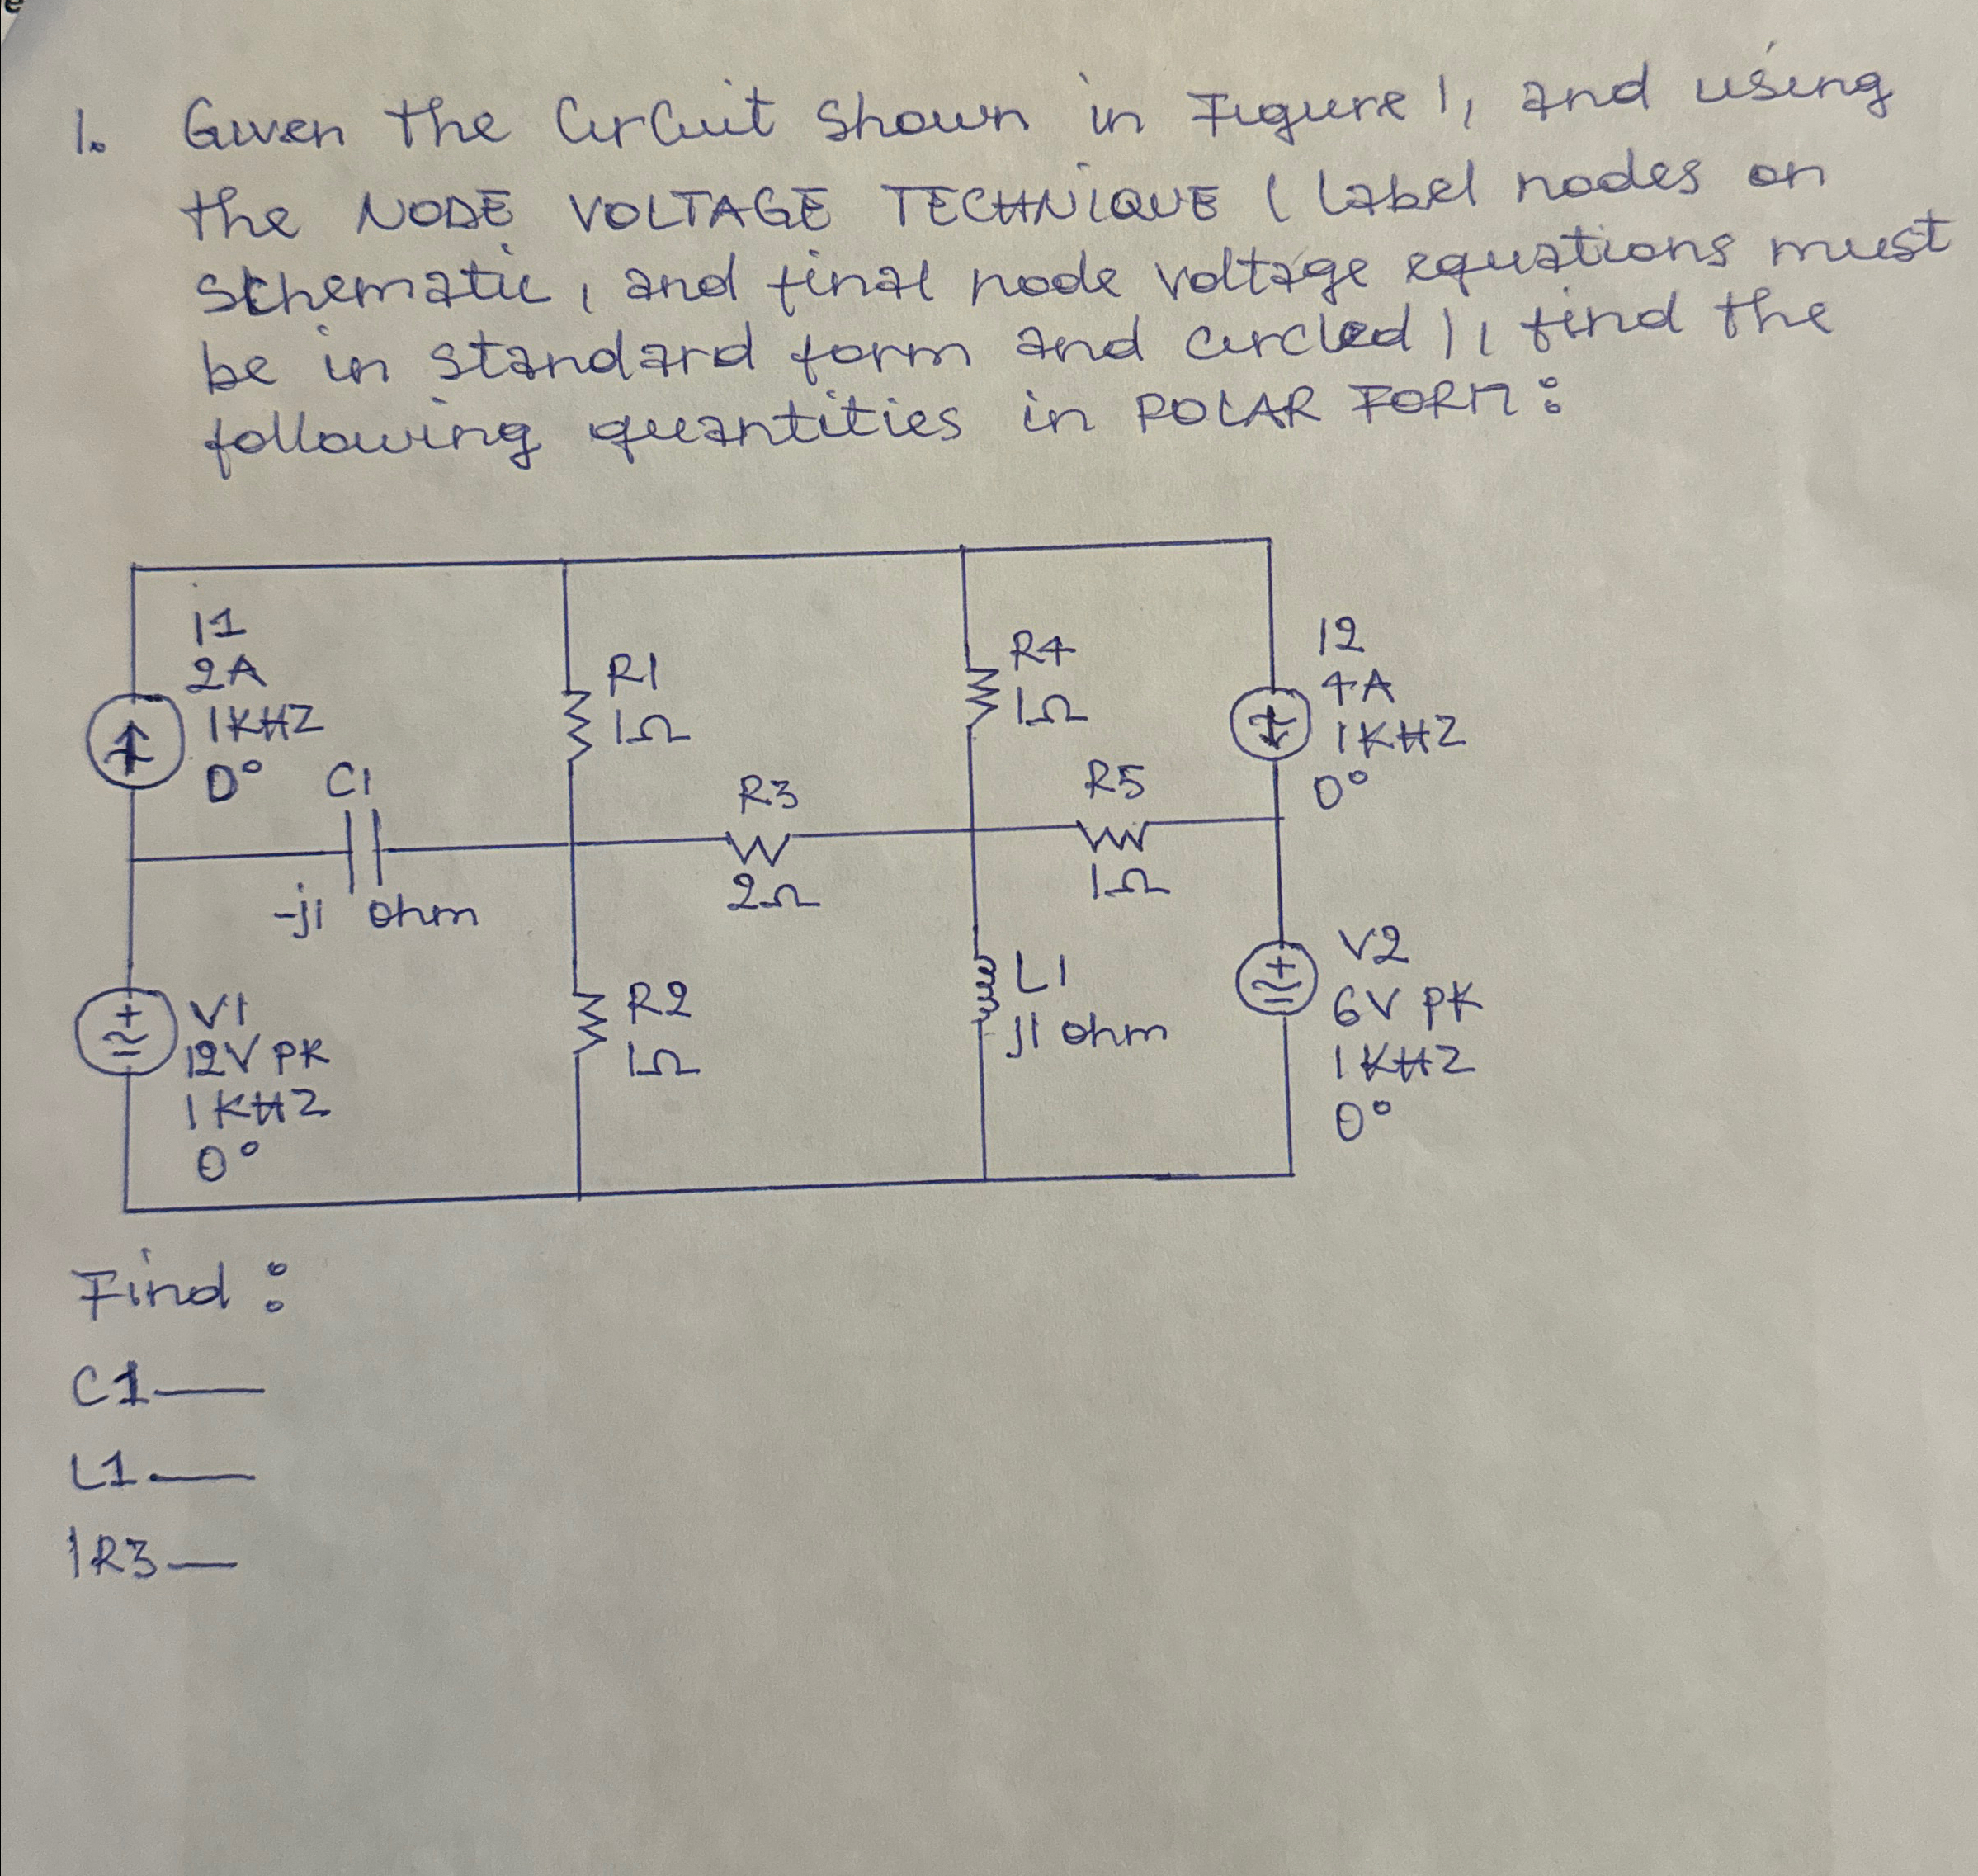 1. Given the circuit shown in Figure 1, and using
the NODE VOLTAGE TECHNIQUE (label nodes on
schematic, and final node voltage equations must
be in standard form and circled), find the
following quantities in POLAR FORM:
I1
2A
1KHZ
0°
C1
-j1 ohm
R1
1Ω
R3
2Ω
R4
1Ω
R5
1Ω
I2
4A
1KHZ
0°
V1
12V PK
1KHZ
0°
R2
1Ω
L1
j1 ohm
V2
6V PK
1KHZ
0°
Find:
C1
L1
IR3